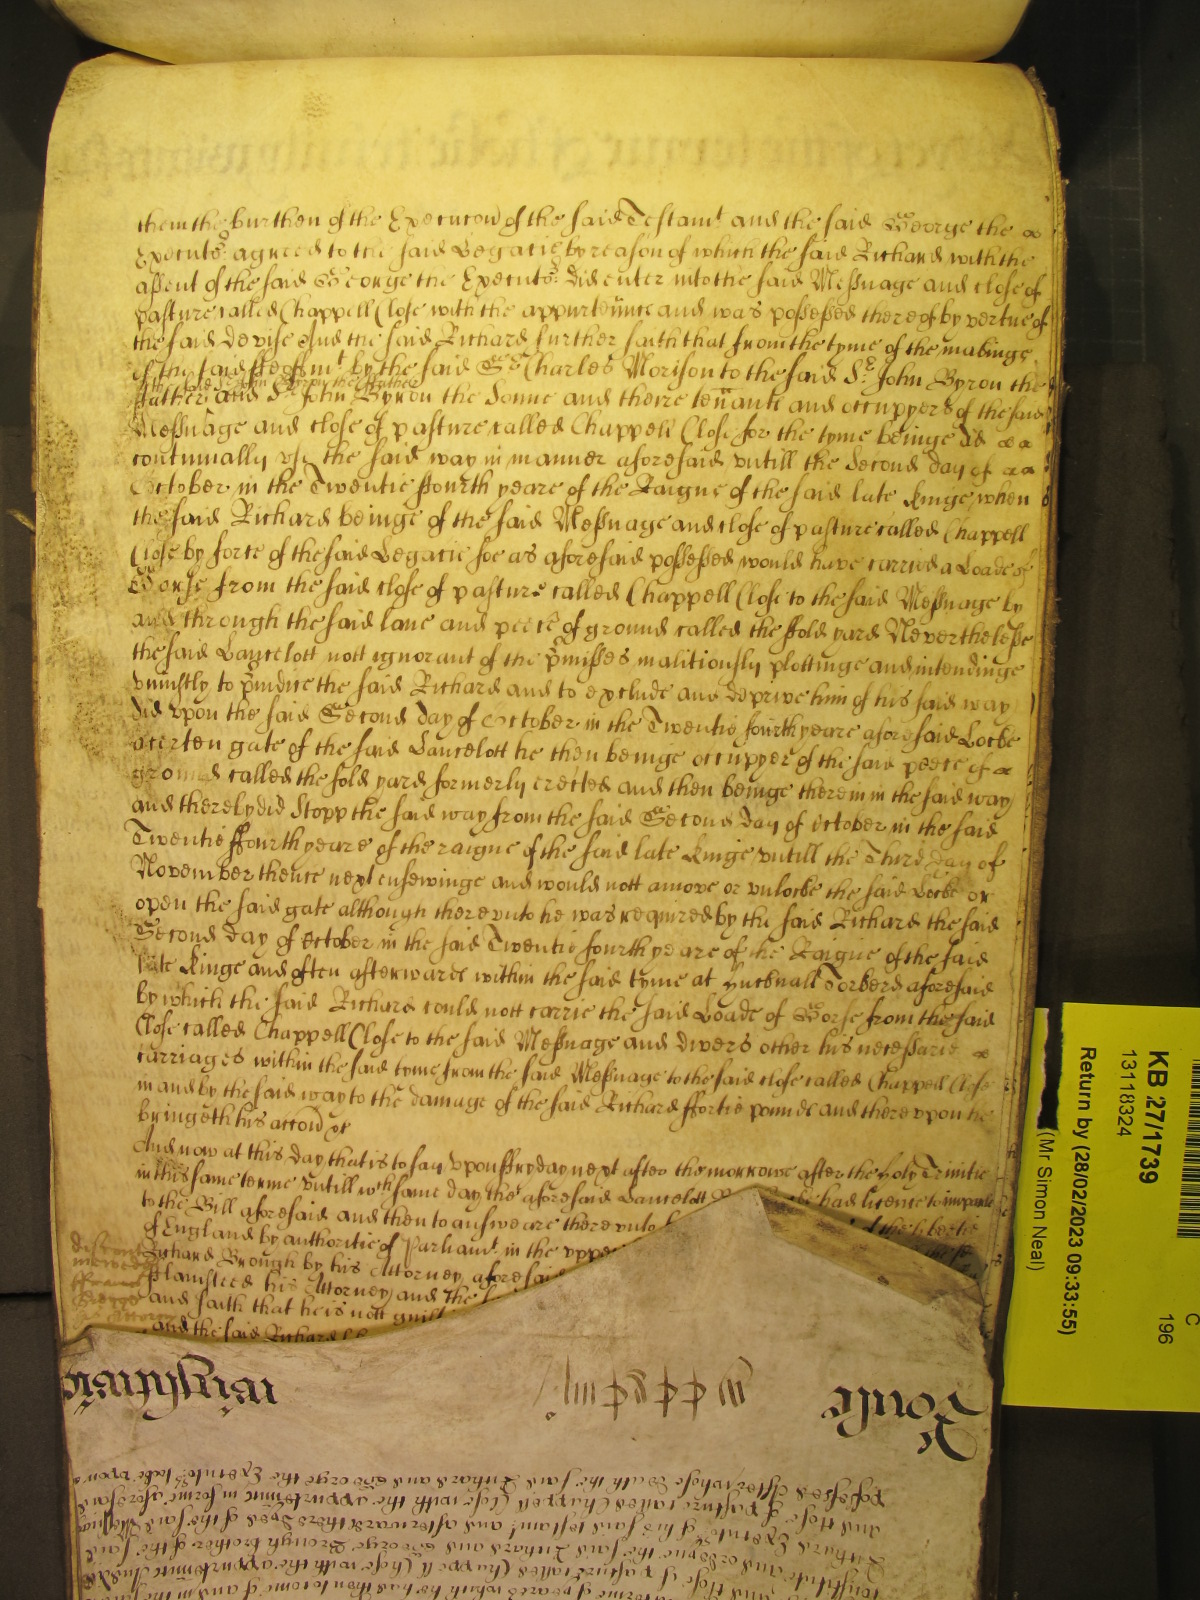 them the burthen of the Execucon of the said Testamt and the said George the
Executor agreed to the said Legacie by reason of which the said Richard with the
assent of the said George the Executor did enter into the said Messuage and close of
pasture called Chappell Close with the appurtennce and was possessed thereof by vertue of
the said devise And the said Richard further saith that from the tyme of the makinge
of the said Feoffmt by the said Sr Charles Morison to the said Sr John Byron the
Father
father and Sr John Byron the Sonne and theire tennants and occupyers of the said
Messuage and close of pasture called Chappell Close for the tyme beinge did
continually use the said way in manner aforesaid vntill the Second day of
October in the Twentie ffourth yeare of the Raigne of the said late kinge when
the said Richard beinge of the said Messuage and close of pasture called Chappell
Close by force of the said Legacie soe as aforesaid possessed would have carried a Loade of
Gorse from the said close of pasture called Chappell Close to the said Messuage by
and through the said lane and peece of ground called the ffold yard Neverthelesse
the said Lancelott nott ignorant of the pmisses malitiously plottinge and intendinge
vniustly to piudice the said Richard and to exclude and deprive him of his said way
did vpon the said Second day of October in the Twentie fourth yeare aforesaid Locke
a certen gate of the said Lancelott he then beinge occupyer of the said peece of
ground called the fold yard formerly erected and then beinge therein in the said way
and thereby did Stopp the said way from the said Second day of October in the said
Twentie ffourth yeare of the raigne of the said late kinge vntill the Third day of
November thence next ensewinge and would nott amove or vnlocke the said Locke or
open the said gate although therevnto he was required by the said Richard the said
Second day of October in the said Twentie fourth yeare of the Raigne of the said
late kinge and often afterwards within the said tyme at Hucknall Torkerd aforesaid
by which the said Richard could nott carrie the said Loade of Gorse from the said
Close called Chappell Close to the said Messuage and divers other his necessarie
carriages within the said tyme from the said Messuage to the said close called Chappell Close
in and by the said way to the damage of the said Richard ffortie pounds and therevpon he
bringeth his accon &c
And now at this day that is to say vpon ffryday next after the morrowe after the holy Trinitie
in this same terme vntill wch same day the aforesaid Lancelott had licence to imparle
to the Bill aforesaid and then to answeare therevnto of the libertie
of England by authoritie of Parliamt in the vpper
Richard Brough by his Attorney aforesaid
Plamsteed his Attorney and the
and saith that he is nott guilt
and the said Richard
KB 27/1739
13118324
Return by (28/02/2023 09:33:55)
(Mr Simon Neal)
C
196
Roule
possessed After whose death the said Richard and George the Executor tooke vpon
and close of pasture called Chappell Close with the appurtennce in forme aforesaid
Richard and George Brough brother of the said